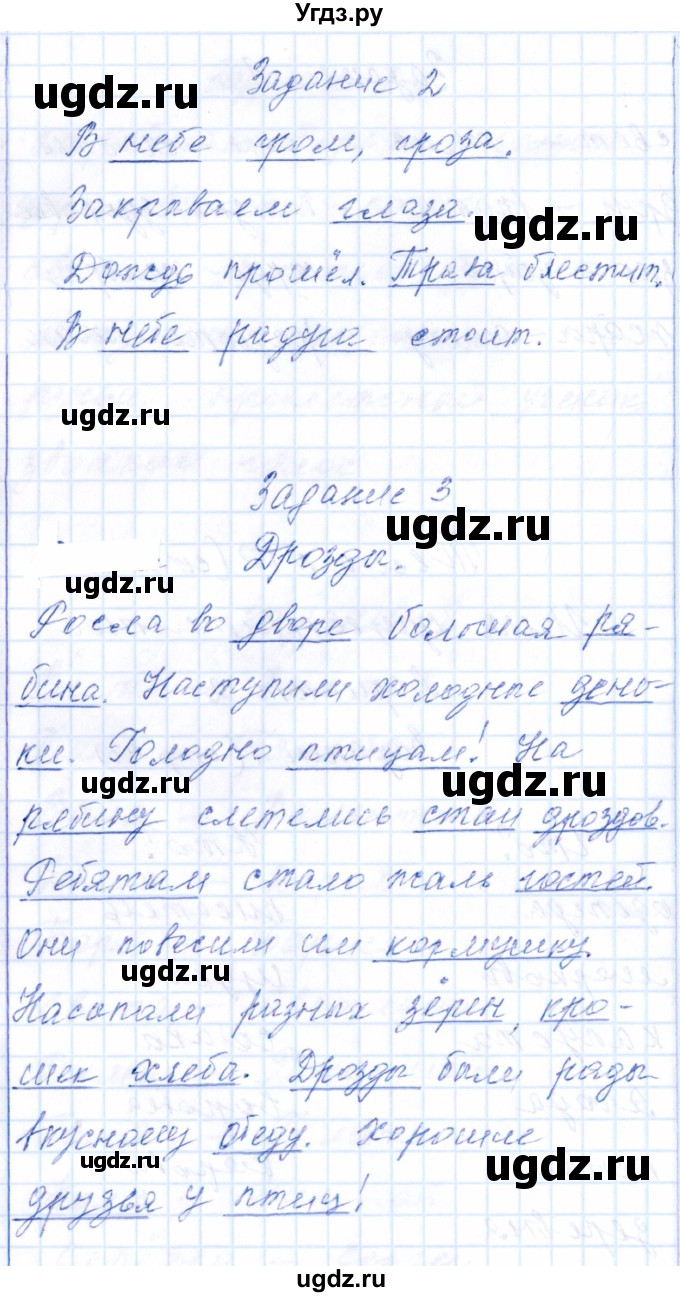 Угдз.ру
Задание 2
ugdz.ru
В небе гром, гроза.
Закрываем глаза.
ugdz.ru
Дождь прошёл. Трава блестит.
В небе радуга стоит.
ugdz.ru
Задание 3
ugdz.ru
Дрозды.
ugdz.ru
Росла во дворе большая ря-
бина. Наступили холодные день-
ки. Голодно птицам! На
ugdz.ru
ugdz.ru
рябину слетелись стаи дроздов.
Ребятам стало жаль гостей.
Они повесили им кормушку.
ugdz.ru
Насыпали разных зёрен, кро-
шек хлеба. Дрозды были рады
вкусному обеду. Хорошие
ugdz.ru
ugdz.ru
друзья у птиц!
ugdz.ru